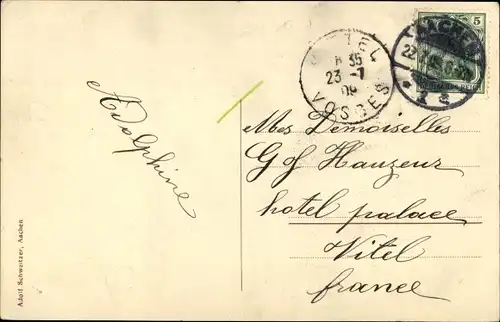 Adolphine
Adolf Schweitzer, Aachen
6 35
23 -7
09
VOSGES
AACHEN
22
* 2 a
5
Mes Demoiselles
G of Hauzeur
hotel palace
Vitel
france